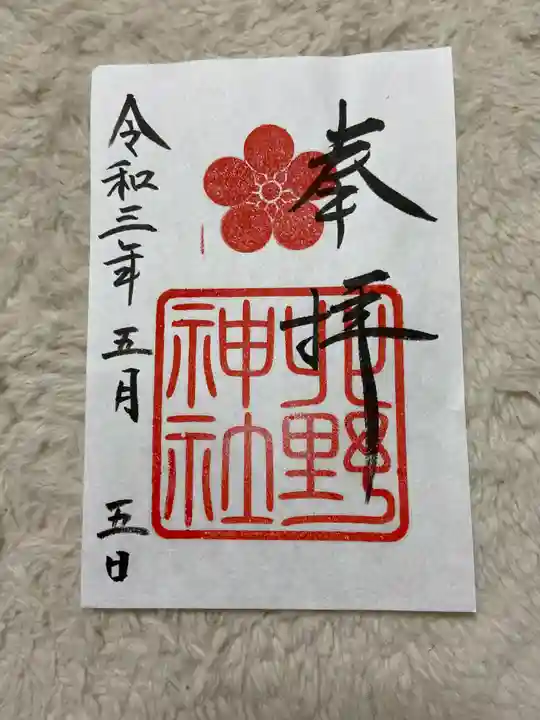 奉拝
北野
神社
令和三年五月五日